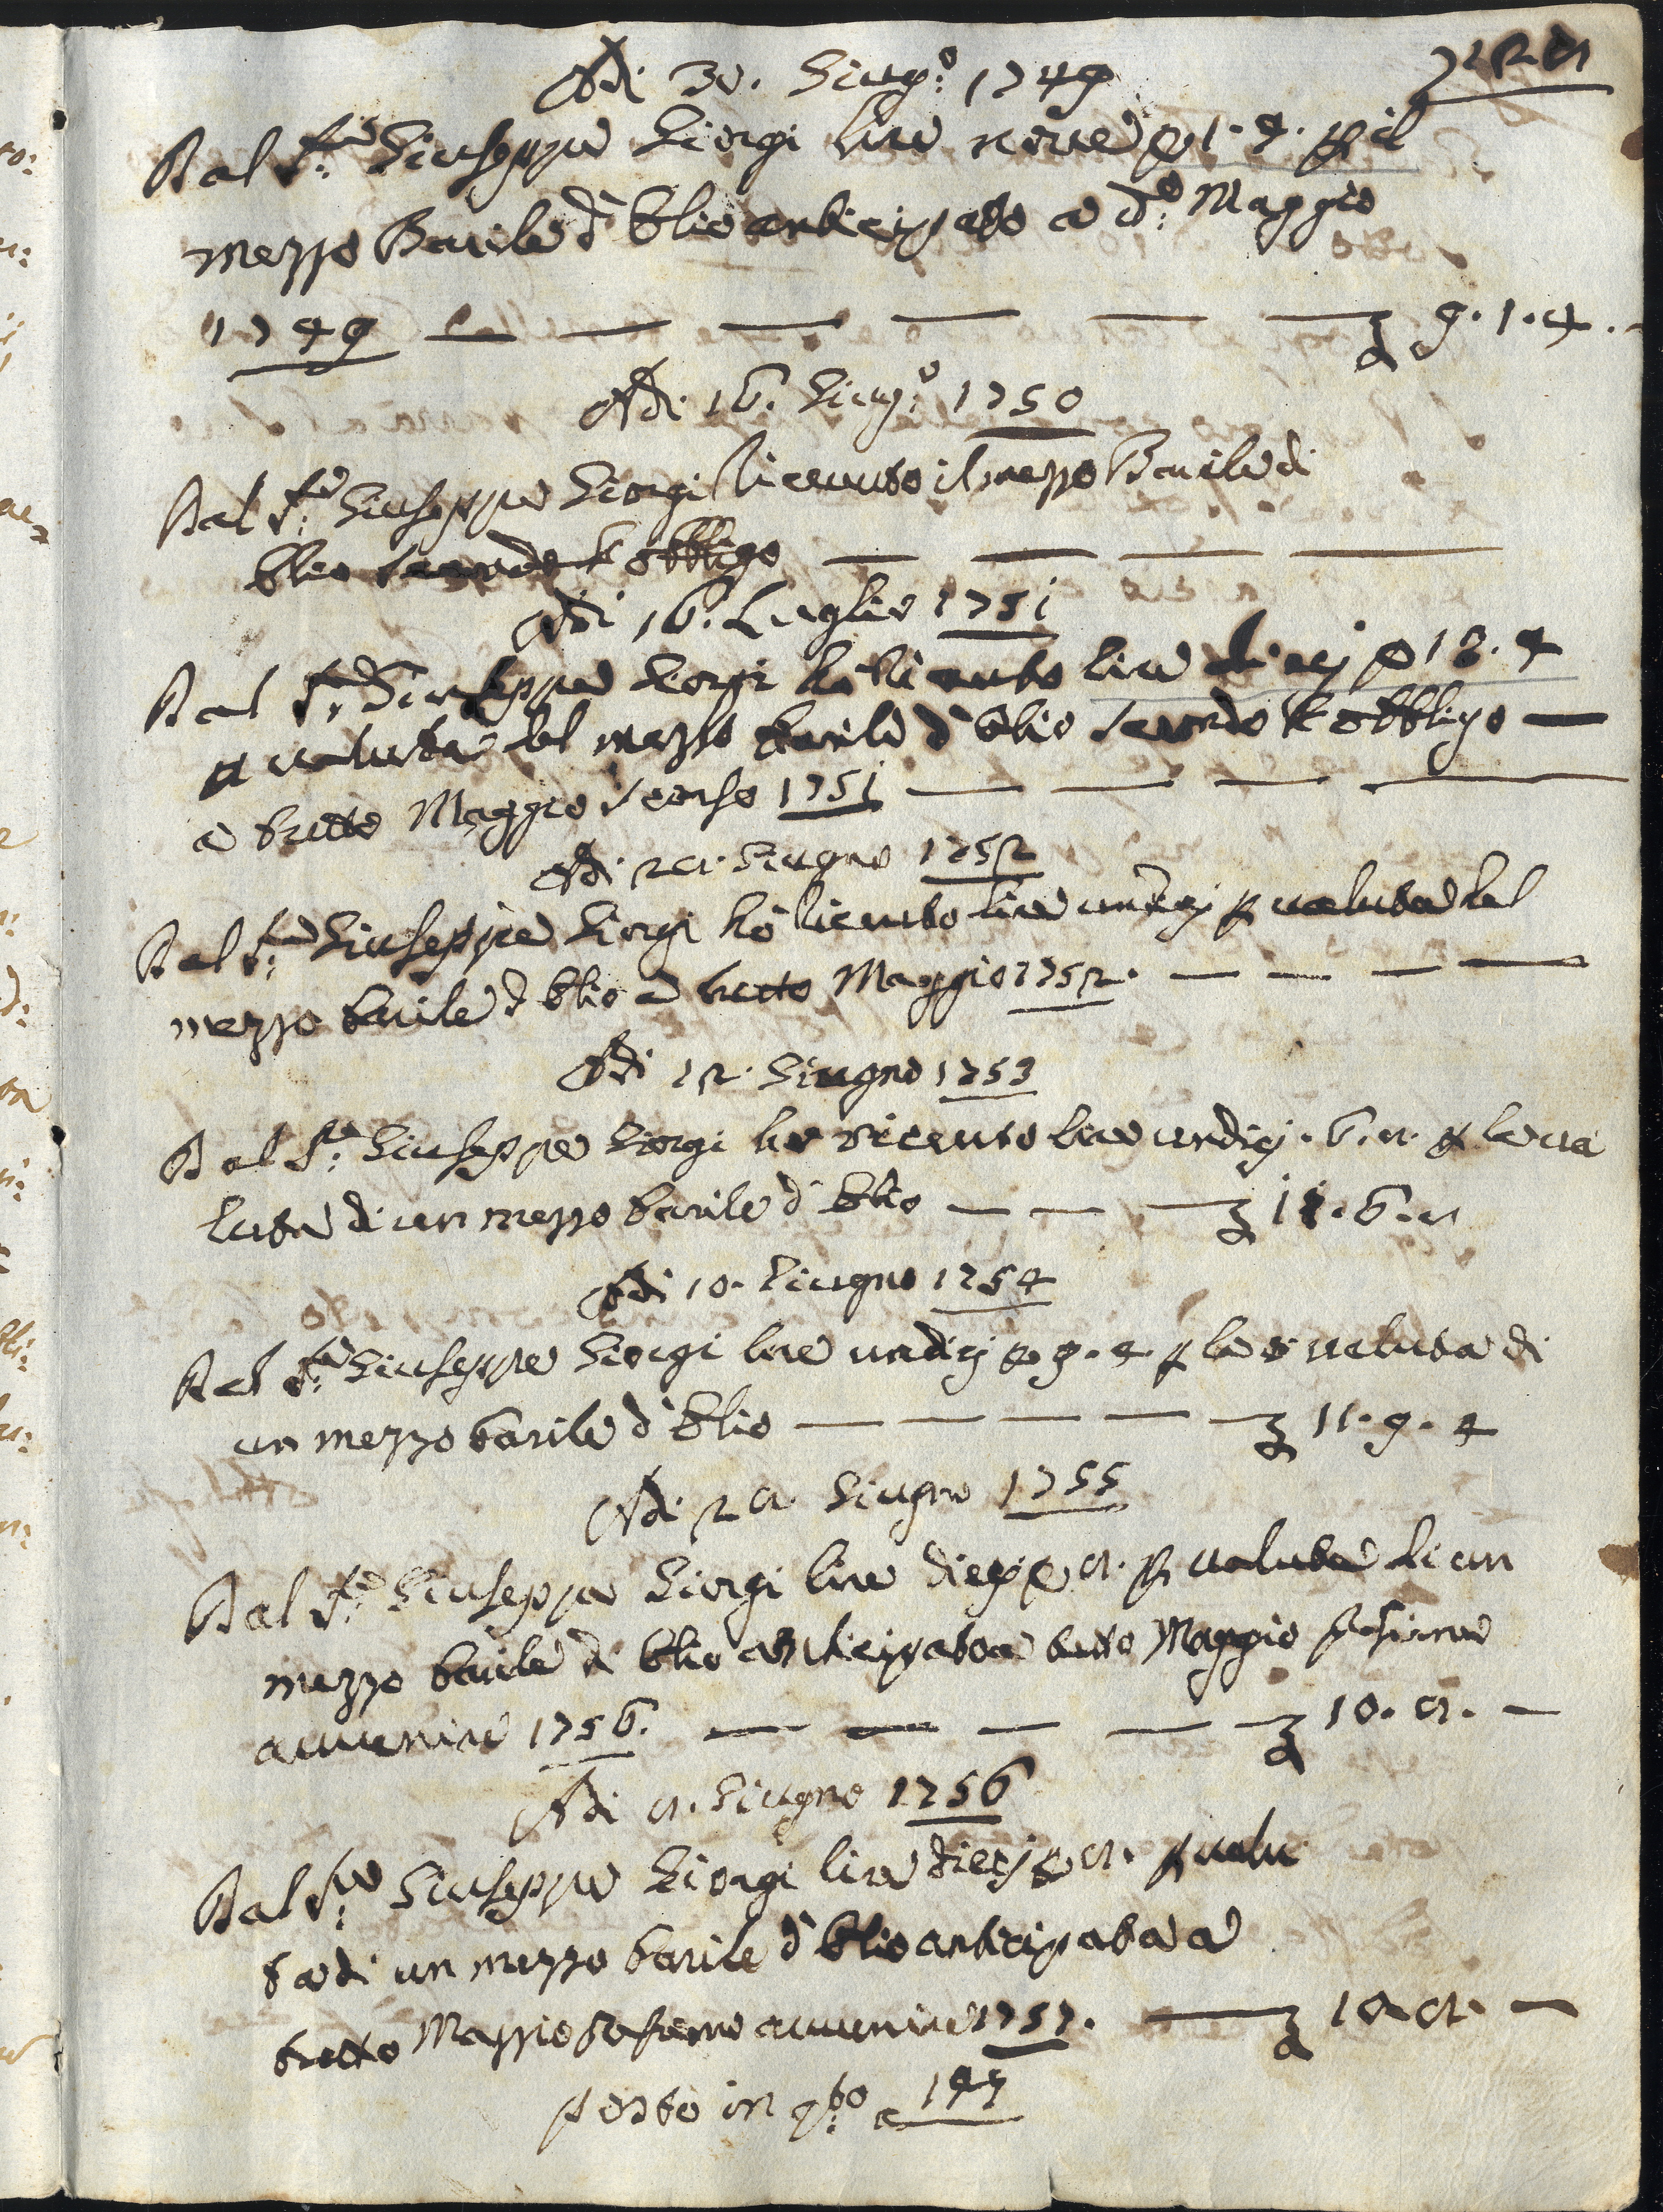 Adi 30. Giug:o 1749
Dal S:re Giuseppe Giorgi lire nove e 1. 4. p il
mezzo Barile d'Olio anticipato a d:o Maggio
1749 — — — — — — 9. 1. 4. -
Adi 16. Giug:o 1750
Dal S:re Giuseppe Giorgi ricevuto il mezzo Barile di
Olio secondo l'obbligo — — — —
Adi 16. Luglio 1751
Dal S:re Giuseppe Giorgi hò ricevuto lire dieci e 13. 4
p valuta del mezzo barile d'Olio secondo l'obbligo —
a tutto Maggio scorso 1751 — — — —
Adi Giugno 1752
Dal S:re Giuseppe Giorgi hò ricevuto lire undici p valuta del
mezzo barile d'Olio a tutto Maggio 1752. — — — —
Adi 12. Giugno 1753
Dal S:re Giuseppe Giorgi hò ricevuto lire undici. 6. 8. p la va
luta di un mezzo barile d'Olio — — — 11. 6. 8
Adi 10. Giugno 1754
Dal S:re Giuseppe Giorgi lire undici e 9. 4 p la valuta di
un mezzo barile d'Olio — — — — — 11. 9. 4
Adi 28 Giugno 1755
Dal S:re Giuseppe Giorgi lire dieci e 8. p valuta di un
mezzo barile di Olio anticipato a tutto Maggio prossimo
avvenire 1756. — — — — — 10. 8. —
Adi 8. Giugno 1756
Dal S:re Giuseppe Giorgi lire dieci e 8. p valu
ta di un mezzo barile d'Olio anticipata a
tutto Maggio prossimo avvenire 1757. — 10 8. —
in q:to a 147